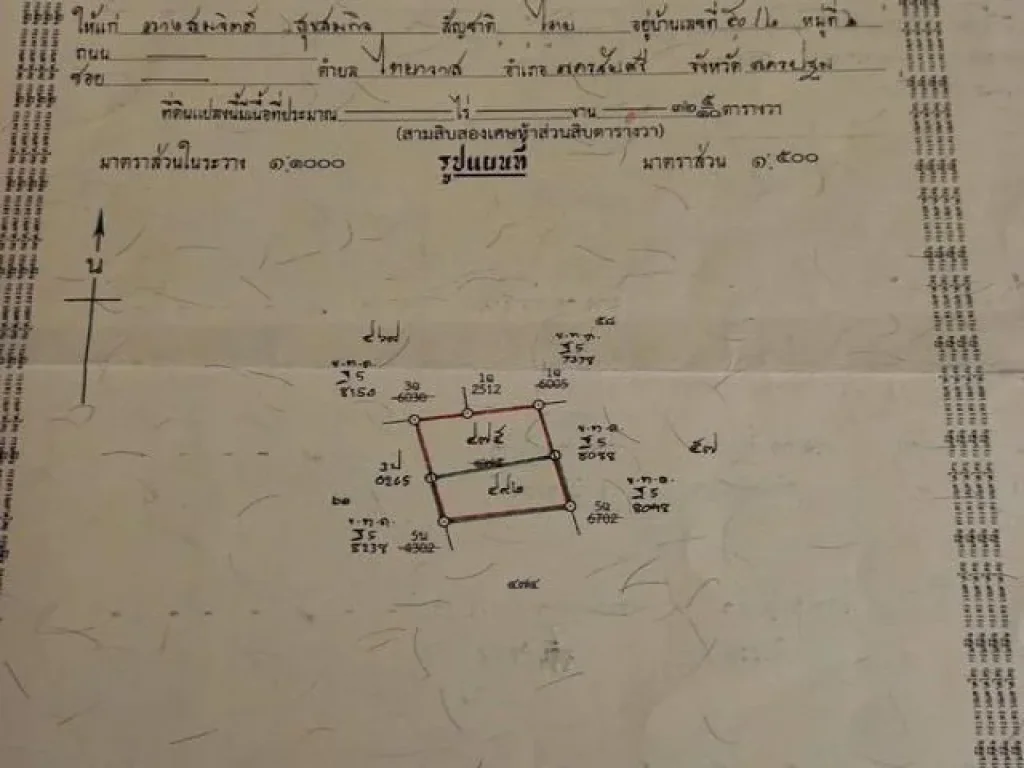 ให้แก่ นางสมจิตต์ สุขสมกิจ สัญชาติ ไทย อยู่บ้านเลขที่ ๕๐/๒ หมู่ที่ ๒
ถนน
ซอย ตำบล ไทยาวาส อำเภอ นครชัยศรี จังหวัด นครปฐม
ที่ดินแปลงนี้มีเนื้อที่ประมาณ ไร่ งาน ๓๒ ๕/๑๐ ตารางวา
(สามสิบสองเศษห้าส่วนสิบตารางวา)
มาตราส่วนในระวาง ๑:๑๐๐๐ รูปแผนที่ มาตราส่วน ๑:๕๐๐
น
๕๘
ข.ท.ด.
ฐ 5
8150
3ฉ
6030
1ฉ
2512
1ฉ
6005
ข.ท.ด.
ฐ 5
7378
๔๗๕
ข.ท.ด.
ฐ 5
8088
๕๗
3ป
0265
๔๙๒
ข.ท.ด.
ฐ 5
8098
5ฉ
6702
ข.ท.ด.
ฐ 5
8238
5น
4302